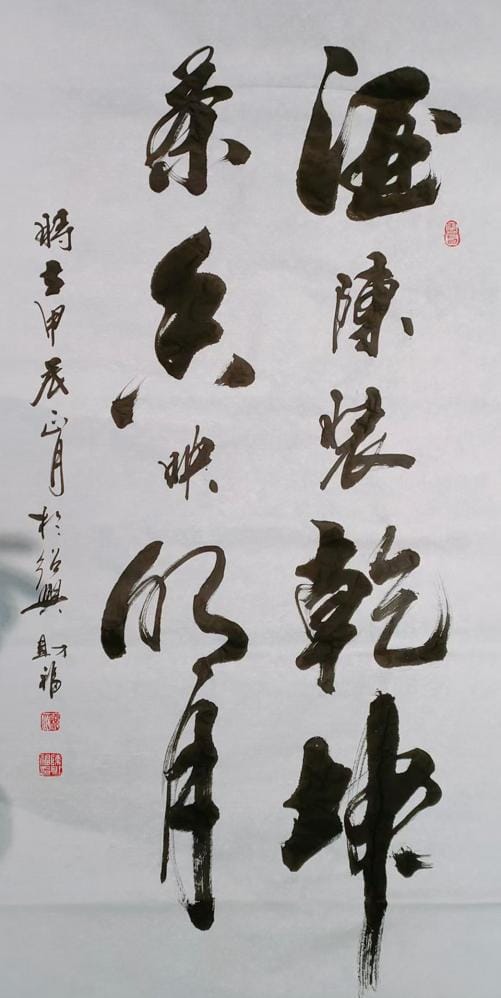 酒陳裝乾坤
茶香映明月
時在甲辰正月於紹興財福